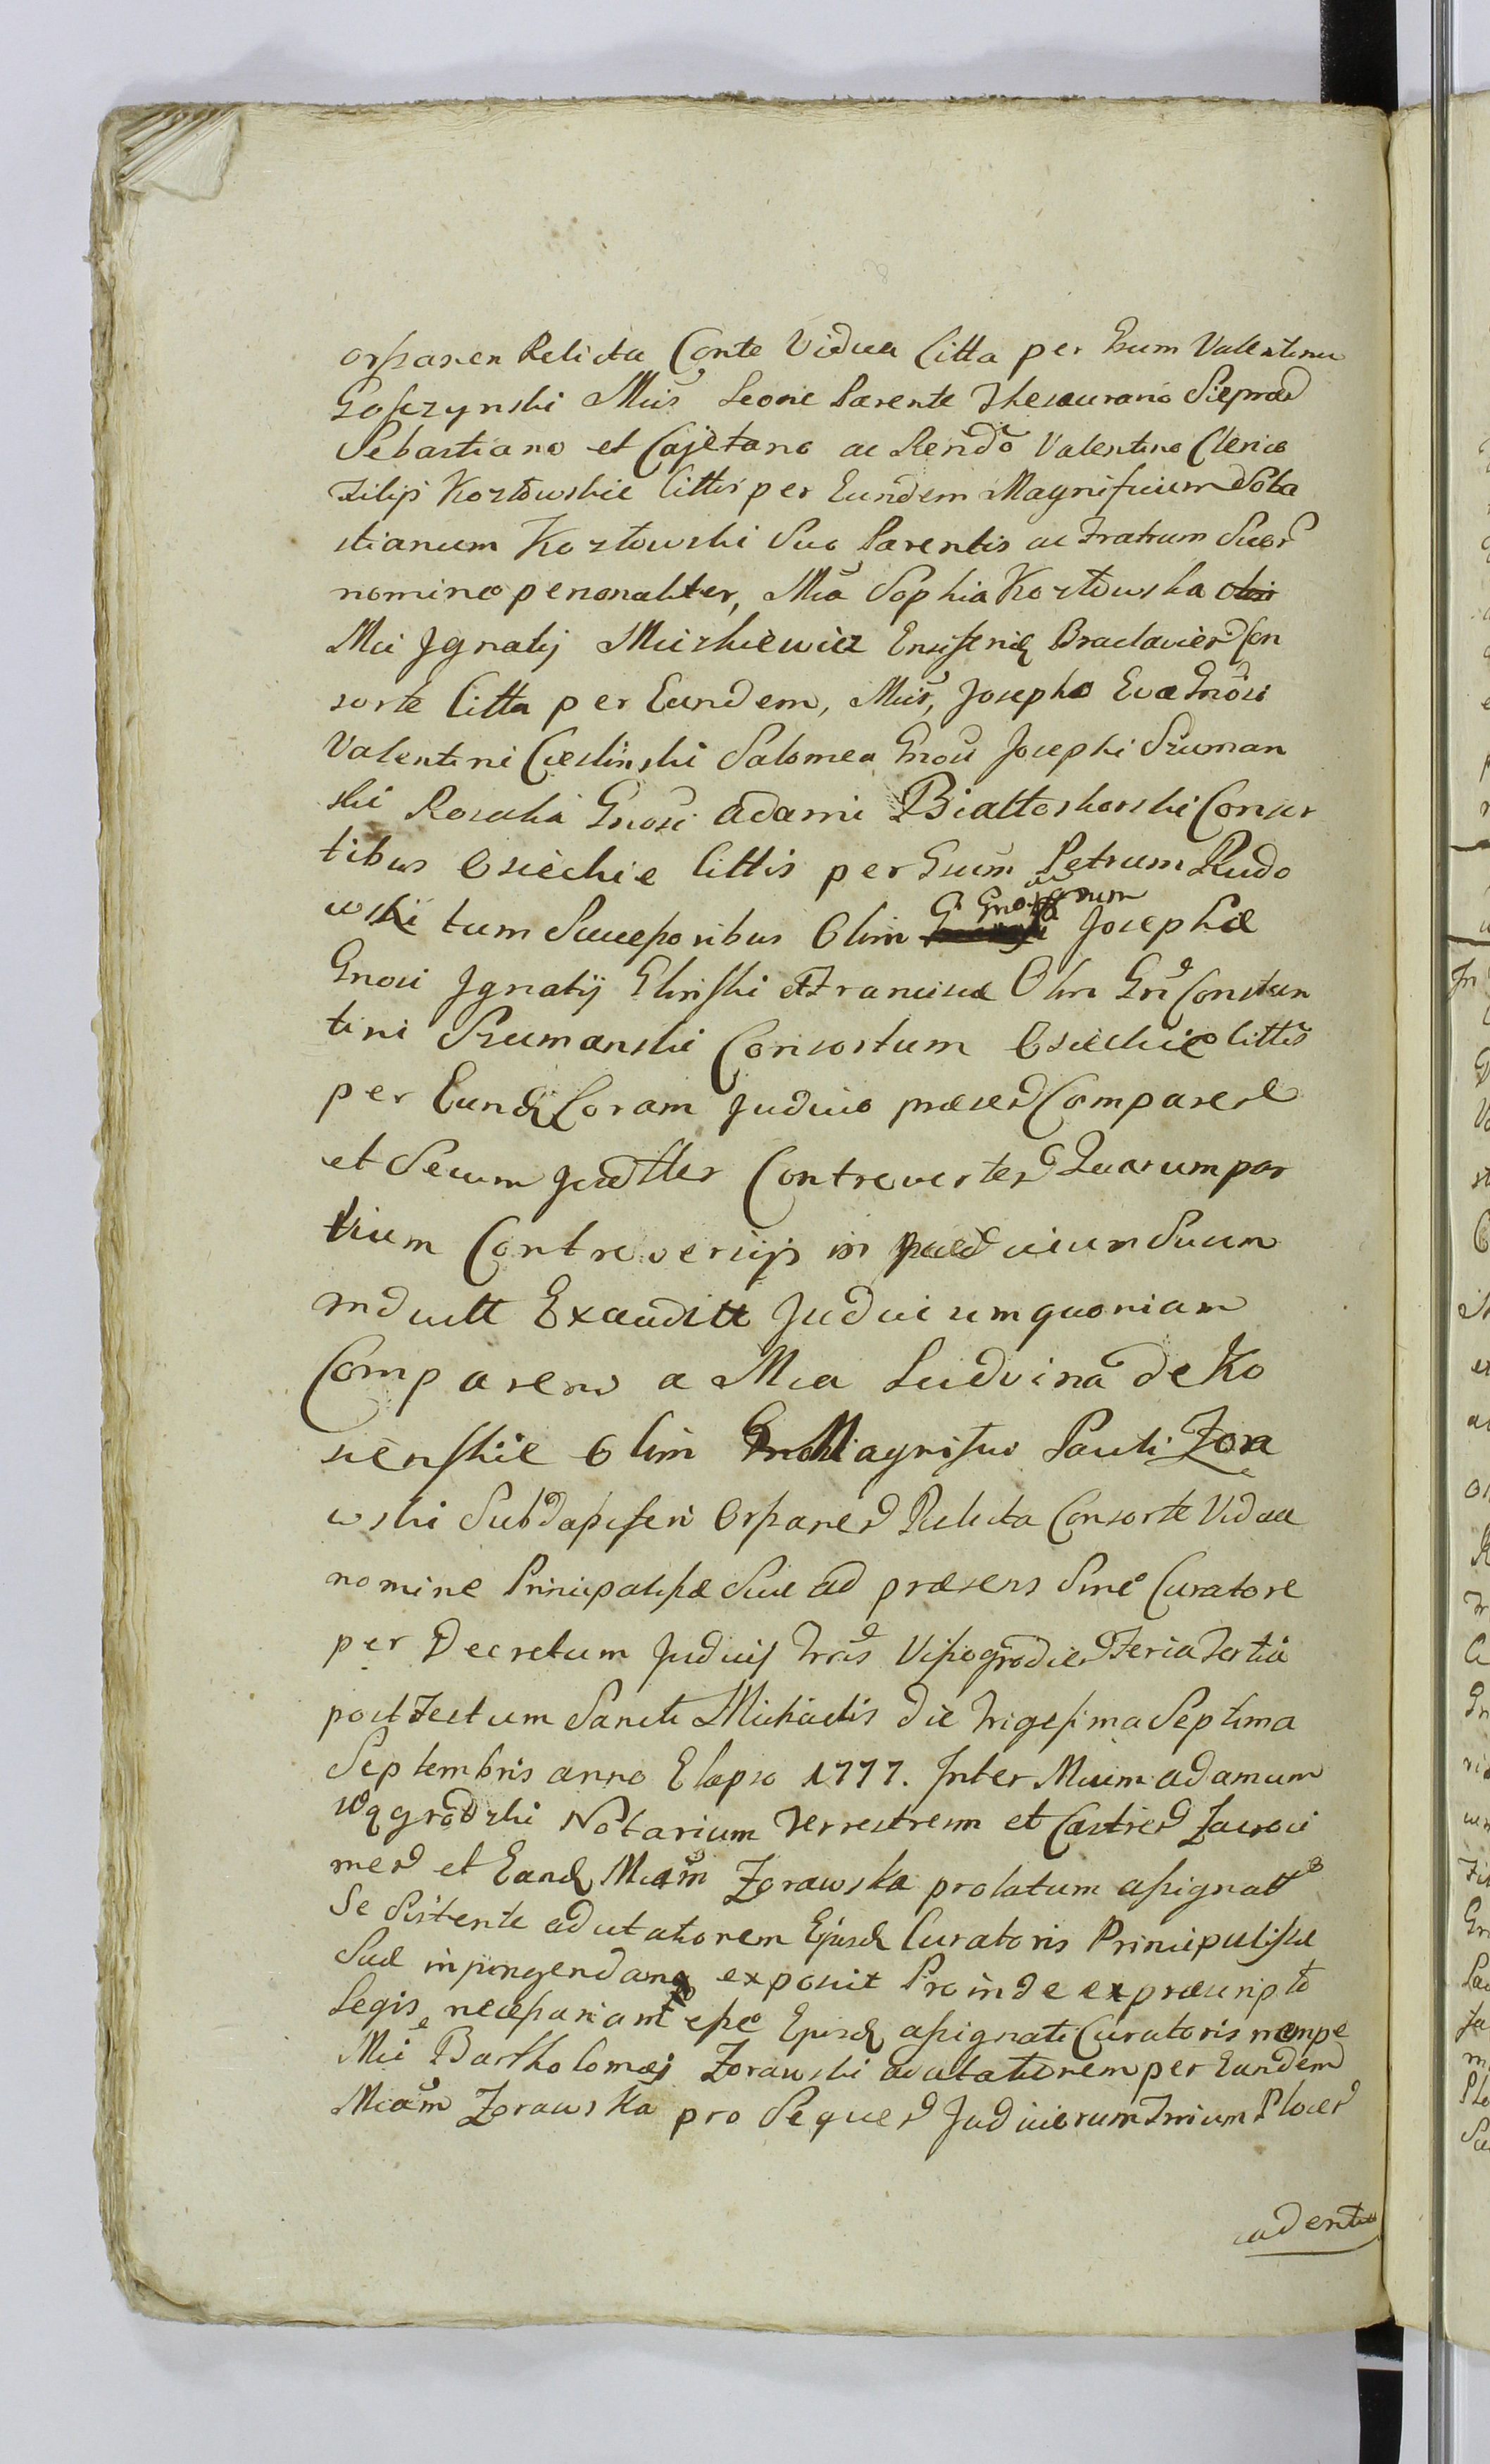 orszanen Relicta Conte Vidua Citta per Gsum Valentinu
Gosczynski Mcis Leone Parente Thesaurario Sieprad
Sebastiano et Cajetano ac Rendo Valentino Clerico
Filijs Kozłowskie Cittis per Eundem Magnificum Seba
stianum Kozłowski Suo Parentis ac Fratrum Suor
nomine personaliter, Mca Sophia Kozłowska
Mci Ignatij Mickiewicz Ensiferi Braclavien Con
sorte Citta per Eundem, Mcis, Josepho Eva Gnosi
Valentini Cieslinski Salomea Gnosi Josephi Szuman
ski Rosalia Gnosi Adami Białłoskorski Consor
tibus Osieckie Cittis per Gsum Petrum Rudo
wski tum Successoribus Olim Josephæ
Gnosi Ignatij Glinski et Franciscæ Olim Gn Constan
tini Szumanski Consortum Osieckie Cittis
per Eund Coram Judicio præsen Comparere
et Secum Controverten Quarum par
tium Controversijs in Judicium Suum
induct Exauditis Judicium quoniam
Comparens a Mca Ludvina de Ko
sienskie Olim Magnifico Pauli Zora
wski Subdapiferi Orszanen Relicta Consorte Vidua
nomine Principalissæ Suæ ad præsens Sine Curatore
per Decretum Judicij Tris Vissogrodien Feria Tertia
post Festum Sancti Michaelis die Trigesima Septima
Septembris anno Elapso 1777. Inter Mcum Adamum
Wągrodzki Notarium Terrestrem et Castren Zacroci
men et Eand Mcam Zorawska prolatum assignatt
Se Sistente adcitationem Ejusd Curatoris Principalissæ
Suæ inpingendam exposuit Proinde ex præscripto
Legis necessariam esse Ejusd assignati Curatoris nempe
Mci Bartholomæj Zorawski adcitationem per Eandem
Mcam Zorawska pro Sequen Judiciorum Trium Plocen